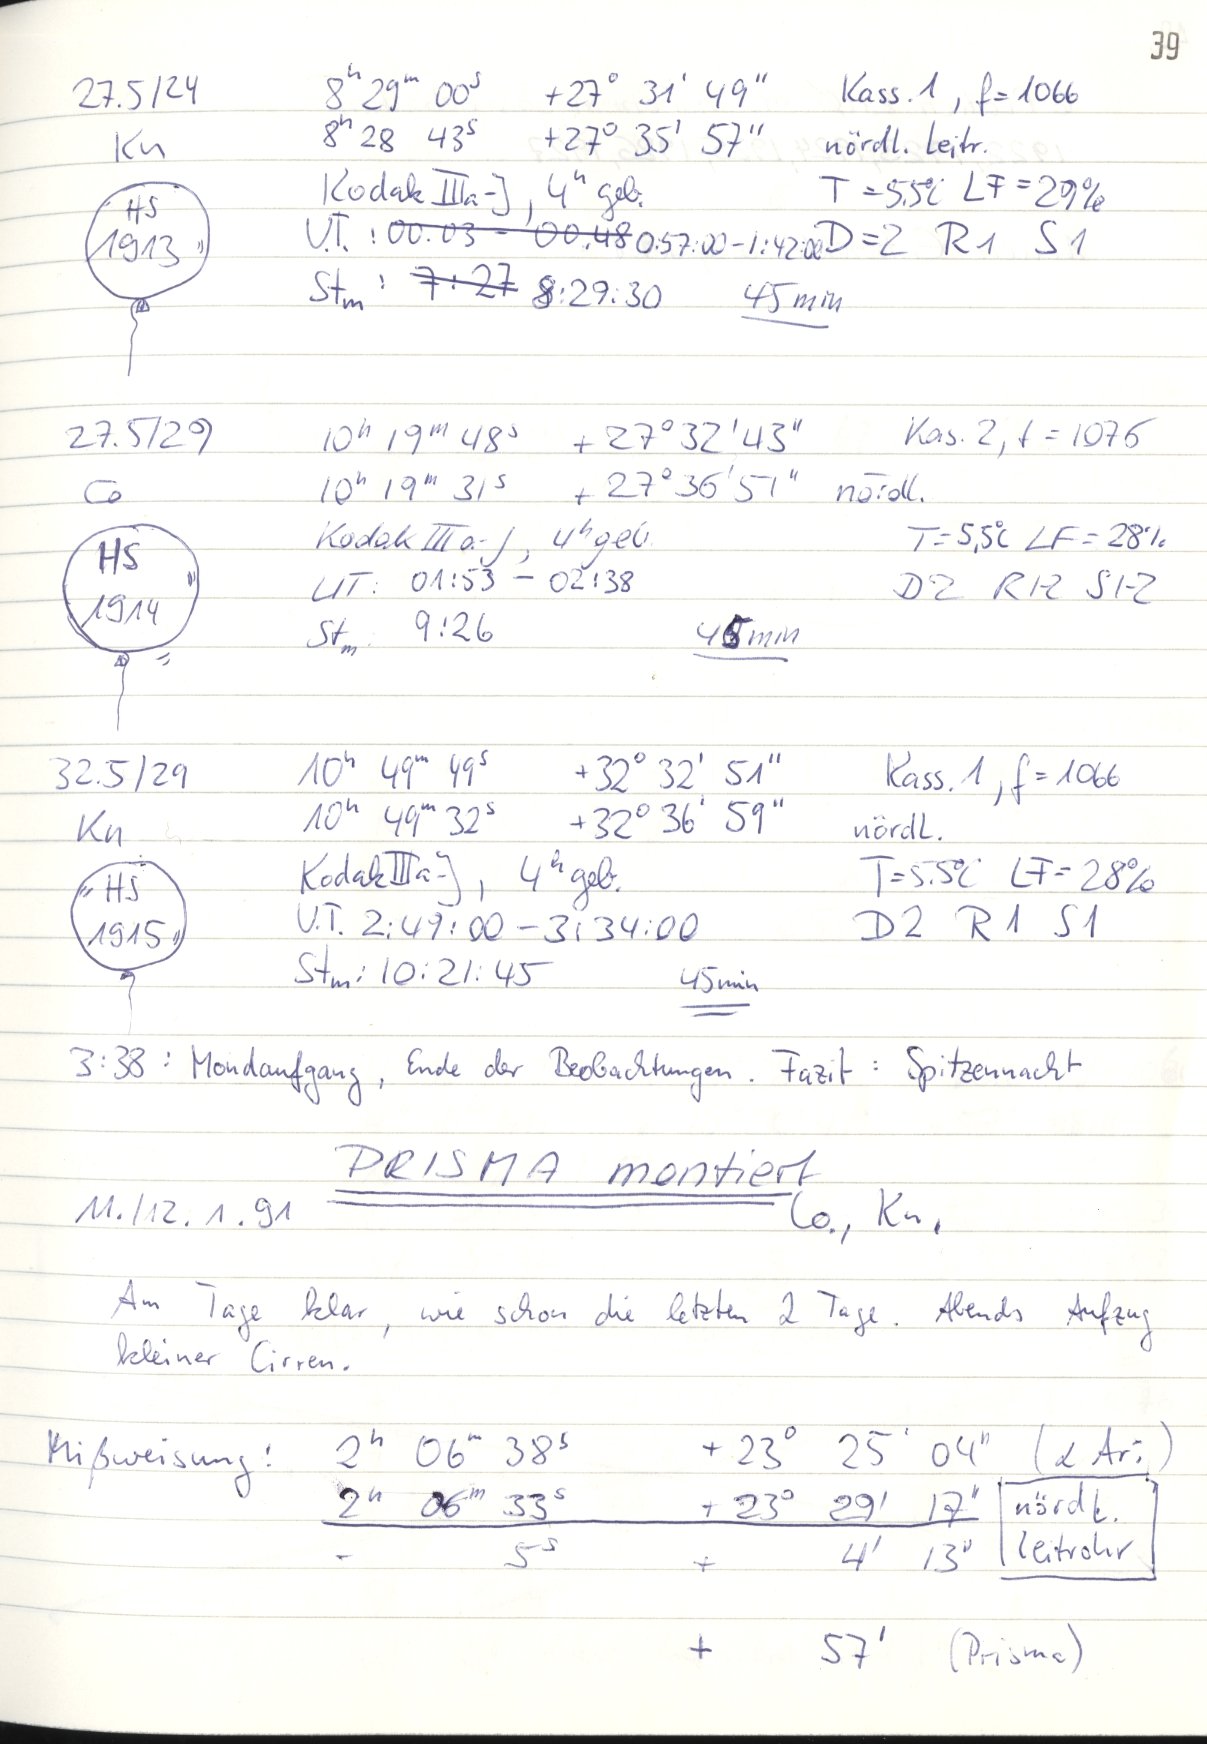 39
27.5/24 8h 29m 00s +27° 31' 49" Kass. 1, f=1066
Kn 8h 28 43s +27° 35' 57" nördl. Leitr.
HS 1913 Kodak IIIa-J, 4h geb. T = 5.5°C LF = 29%
U.T.: 00:03 - 00:48 0:57:00-1:42:00 D=2 R1 S1
Stm: 7:27 8:29:30 45 min
27.5/29 10h 19m 48s +27° 32' 43" Kas. 2, f = 1076
Co 10h 19m 31s +27° 36' 51" nördl.
HS 1914 Kodak IIIa-J, 4h geb. T = 5,5°C LF = 28%
UT: 01:53 - 02:38 D2 R1-2 S1-2
Stm: 9:26 45 min
32.5/29 10h 49m 49s +32° 32' 51" Kass. 1, f=1066
Kn 10h 49m 32s +32° 36' 59" nördl.
"HS 1915" Kodak IIIa-J, 4h geb. T=5.5°C LF= 28%
U.T. 2:49:00 - 3:34:00 D2 R1 S1
Stm: 10:21:45 45min
3:38: Mondaufgang, Ende der Beobachtungen. Fazit: Spitzennacht
PRISMA montiert
11./12. 1. 91 Co., Kn.
Am Tage klar, wie schon die letzten 2 Tage. Abends Aufzug
kleiner Cirren.
Mißweisung: 2h 06m 38s +23° 25' 04" (α Ari)
2h 06m 33s +23° 29' 17" nördl.
- 5s + 4' 13" Leitrohr
+ 57' (Prisma)